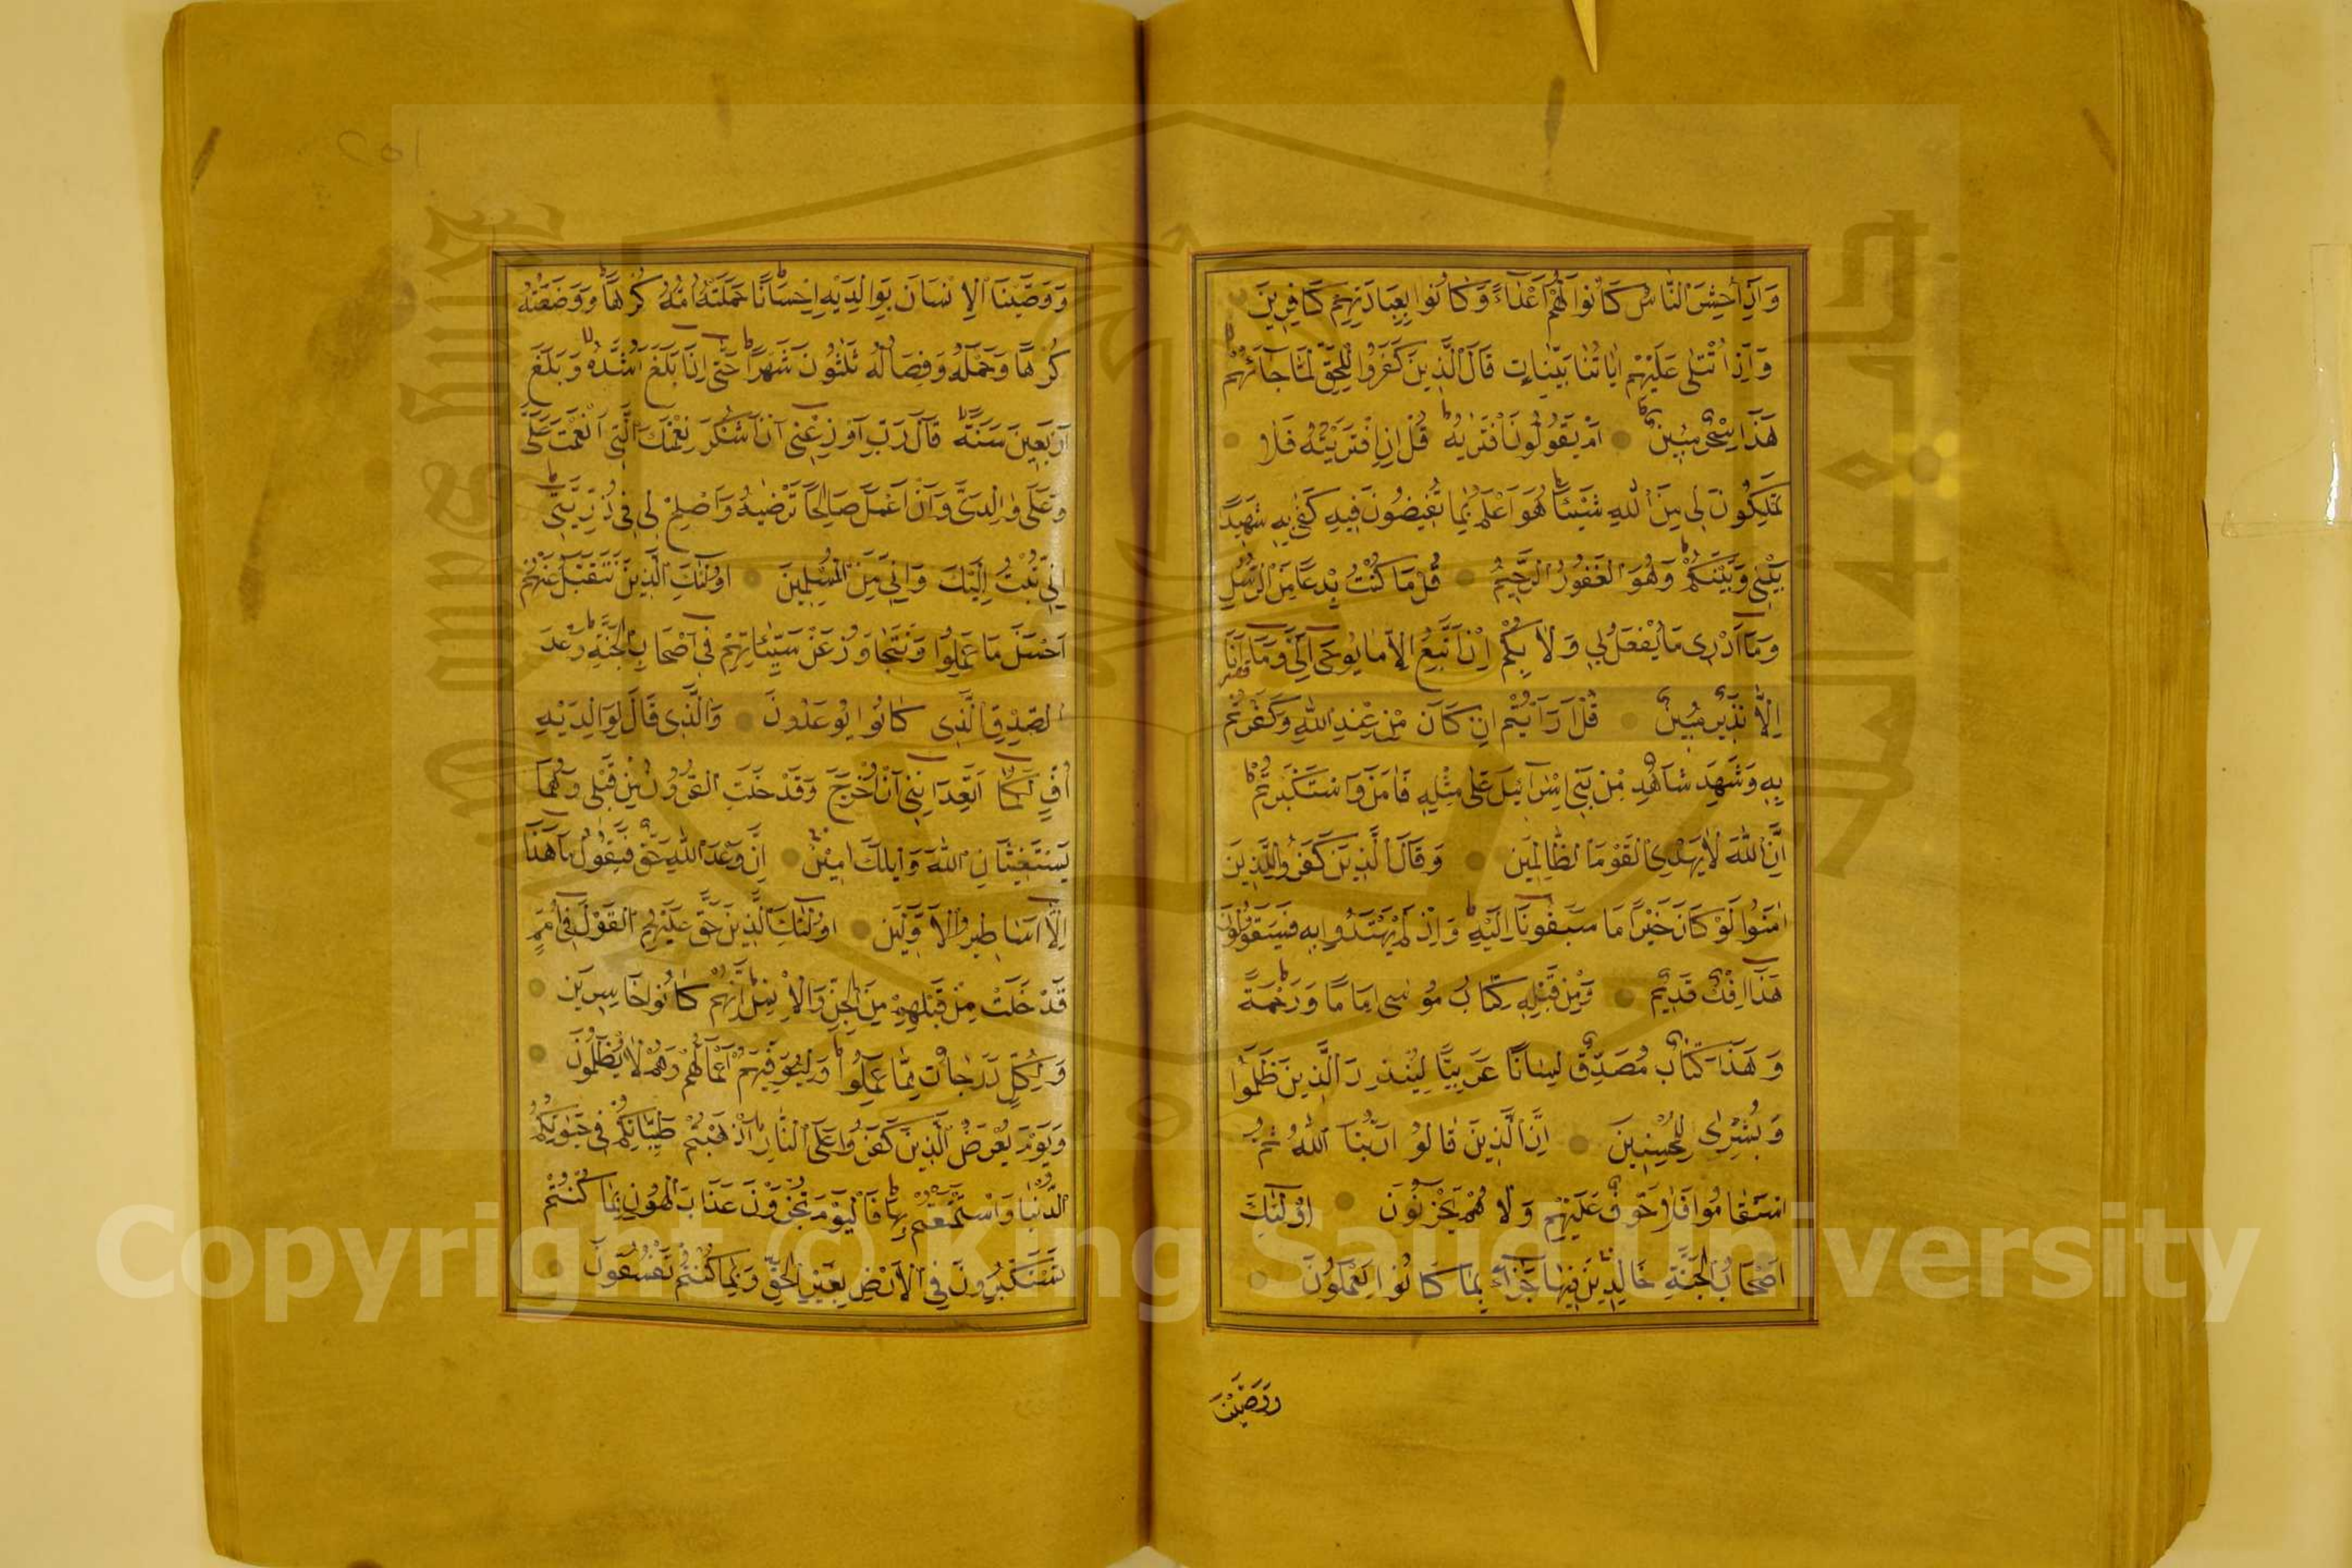 وَاِذَا حُشِرَ النَّاسُ كَانُوا لَهُمْ اَعْدَاءً وَكَانُوا بِعِبَادَتِهِمْ كَافِرِينَ
وَاِذَا تُتْلٰى عَلَيْهِمْ اٰيَاتُنَا بَيِّنَاتٍ قَالَ الَّذِينَ كَفَرُوا لِلْحَقِّ لَمَّا جَاۤءَهُمْ
هٰذَا سِحْرٌ مُبِينٌ اَمْ يَقُولُونَ افْتَرٰيهُ قُلْ اِنِ افْتَرَيْتُهُ فَلَا
تَمْلِكُونَ لِى مِنَ اللّٰهِ شَيْئًا هُوَ اَعْلَمُ بِمَا تُفِيضُونَ فِيهِ كَفٰى بِهِ شَهِيدًا
بَيْنِى وَبَيْنَكُمْ وَهُوَ الْغَفُورُ الرَّحِيمُ قُلْ مَا كُنْتُ بِدْعًا مِنَ الرُّسُلِ
وَمَا اَدْرِى مَا يُفْعَلُ بِى وَلَا بِكُمْ اِنْ اَتَّبِعُ اِلَّا مَا يُوحٰى اِلَىَّ وَمَا اَنَا
اِلَّا نَذِيرٌ مُبِينٌ قُلْ اَرَاَيْتُمْ اِنْ كَانَ مِنْ عِنْدِ اللّٰهِ وَكَفَرْتُمْ
بِهِ وَشَهِدَ شَاهِدٌ مِنْ بَنِى اِسْرَاۤئِيلَ عَلٰى مِثْلِهِ فَاٰمَنَ وَاسْتَكْبَرْتُمْ
اِنَّ اللّٰهَ لَا يَهْدِى الْقَوْمَ الظَّالِمِينَ وَقَالَ الَّذِينَ كَفَرُوا لِلَّذِينَ
اٰمَنُوا لَوْ كَانَ خَيْرًا مَا سَبَقُونَا اِلَيْهِ وَاِذْ لَمْ يَهْتَدُوا بِهِ فَسَيَقُولُونَ
هٰذَا اِفْكٌ قَدِيمٌ وَمِنْ قَبْلِهِ كِتَابُ مُوسٰى اِمَامًا وَرَحْمَةً
وَهٰذَا كِتَابٌ مُصَدِّقٌ لِسَانًا عَرَبِيًّا لِيُنْذِرَ الَّذِينَ ظَلَمُوا
وَبُشْرٰى لِلْمُحْسِنِينَ اِنَّ الَّذِينَ قَالُوا رَبُّنَا اللّٰهُ ثُمَّ
اسْتَقَامُوا فَلَا خَوْفٌ عَلَيْهِمْ وَلَا هُمْ يَحْزَنُونَ اُولٰۤئِكَ
اَصْحَابُ الْجَنَّةِ خَالِدِينَ فِيهَا جَزَاۤءً بِمَا كَانُوا يَعْمَلُونَ
وَوَصَّيْنَا
وَوَصَّيْنَا الْاِنْسَانَ بِوَالِدَيْهِ اِحْسَانًا حَمَلَتْهُ اُمُّهُ كُرْهًا وَوَضَعَتْهُ
كُرْهًا وَحَمْلُهُ وَفِصَالُهُ ثَلٰثُونَ شَهْرًا حَتّٰى اِذَا بَلَغَ اَشُدَّهُ وَبَلَغَ
اَرْبَعِينَ سَنَةً قَالَ رَبِّ اَوْزِعْنِى اَنْ اَشْكُرَ نِعْمَتَكَ الَّتِى اَنْعَمْتَ عَلَىَّ
وَعَلٰى وَالِدَىَّ وَاَنْ اَعْمَلَ صَالِحًا تَرْضٰيهُ وَاَصْلِحْ لِى فِى ذُرِّيَّتِى
اِنِّى تُبْتُ اِلَيْكَ وَاِنِّى مِنَ الْمُسْلِمِينَ اُولٰۤئِكَ الَّذِينَ نَتَقَبَّلُ عَنْهُمْ
اَحْسَنَ مَا عَمِلُوا وَنَتَجَاوَزُ عَنْ سَيِّئَاتِهِمْ فِى اَصْحَابِ الْجَنَّةِ وَعْدَ
الصِّدْقِ الَّذِى كَانُوا يُوعَدُونَ وَالَّذِى قَالَ لِوَالِدَيْهِ
اُفٍّ لَكُمَا اَتَعِدَانِنِى اَنْ اُخْرَجَ وَقَدْ خَلَتِ الْقُرُونُ مِنْ قَبْلِى وَهُمَا
يَسْتَغِيثَانِ اللّٰهَ وَيْلَكَ اٰمِنْ اِنَّ وَعْدَ اللّٰهِ حَقٌّ فَيَقُولُ مَا هٰذَا
اِلَّا اَسَاطِيرُ الْاَوَّلِينَ اُولٰۤئِكَ الَّذِينَ حَقَّ عَلَيْهِمُ الْقَوْلُ فِى اُمَمٍ
قَدْ خَلَتْ مِنْ قَبْلِهِمْ مِنَ الْجِنِّ وَالْاِنْسِ اِنَّهُمْ كَانُوا خَاسِرِينَ
وَلِكُلٍّ دَرَجَاتٌ مِمَّا عَمِلُوا وَلِيُوَفِّيَهُمْ اَعْمَالَهُمْ وَهُمْ لَا يُظْلَمُونَ
وَيَوْمَ يُعْرَضُ الَّذِينَ كَفَرُوا عَلَى النَّارِ اَذْهَبْتُمْ طَيِّبَاتِكُمْ فِى حَيٰوتِكُمُ
الدُّنْيَا وَاسْتَمْتَعْتُمْ بِهَا فَالْيَوْمَ تُجْزَوْنَ عَذَابَ الْهُونِ بِمَا كُنْتُمْ
تَسْتَكْبِرُونَ فِى الْاَرْضِ بِغَيْرِ الْحَقِّ وَبِمَا كُنْتُمْ تَفْسُقُونَ
Copyright © King Saud University